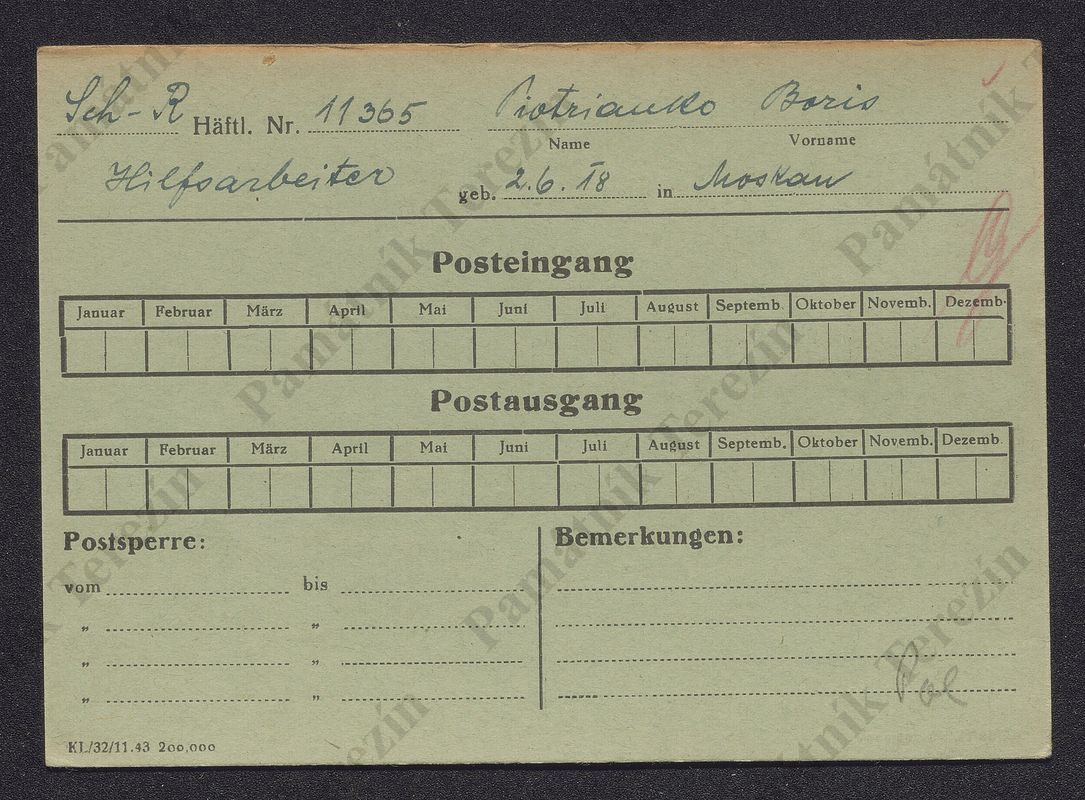 Sch-R Häftl. Nr. 11365 Piotrianko Boris
Name Vorname
Hilfsarbeiter geb. 2.6.18 in Moskau
Posteingang
Januar Februar März April Mai Juni Juli August Septemb. Oktober Novemb. Dezemb.
Postausgang
Januar Februar März April Mai Juni Juli August Septemb. Oktober Novemb. Dezemb.
Postsperre:
vom bis
„ „
„ „
„ „
Bemerkungen:
KL/32/11.43 200,000
Památník Terezín